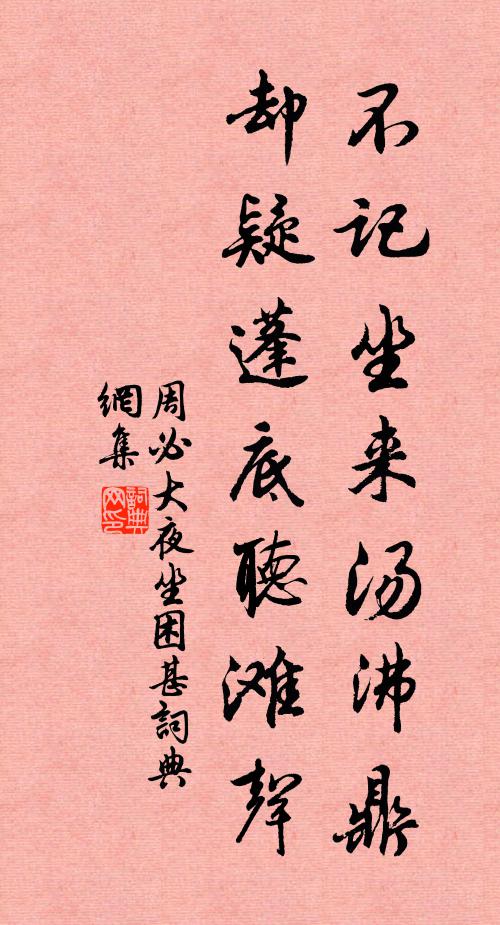 不记坐来汤沸鼎
却疑蓬底聴滩聲
周必大夜坐困甚詞典
網集
詞典
网印